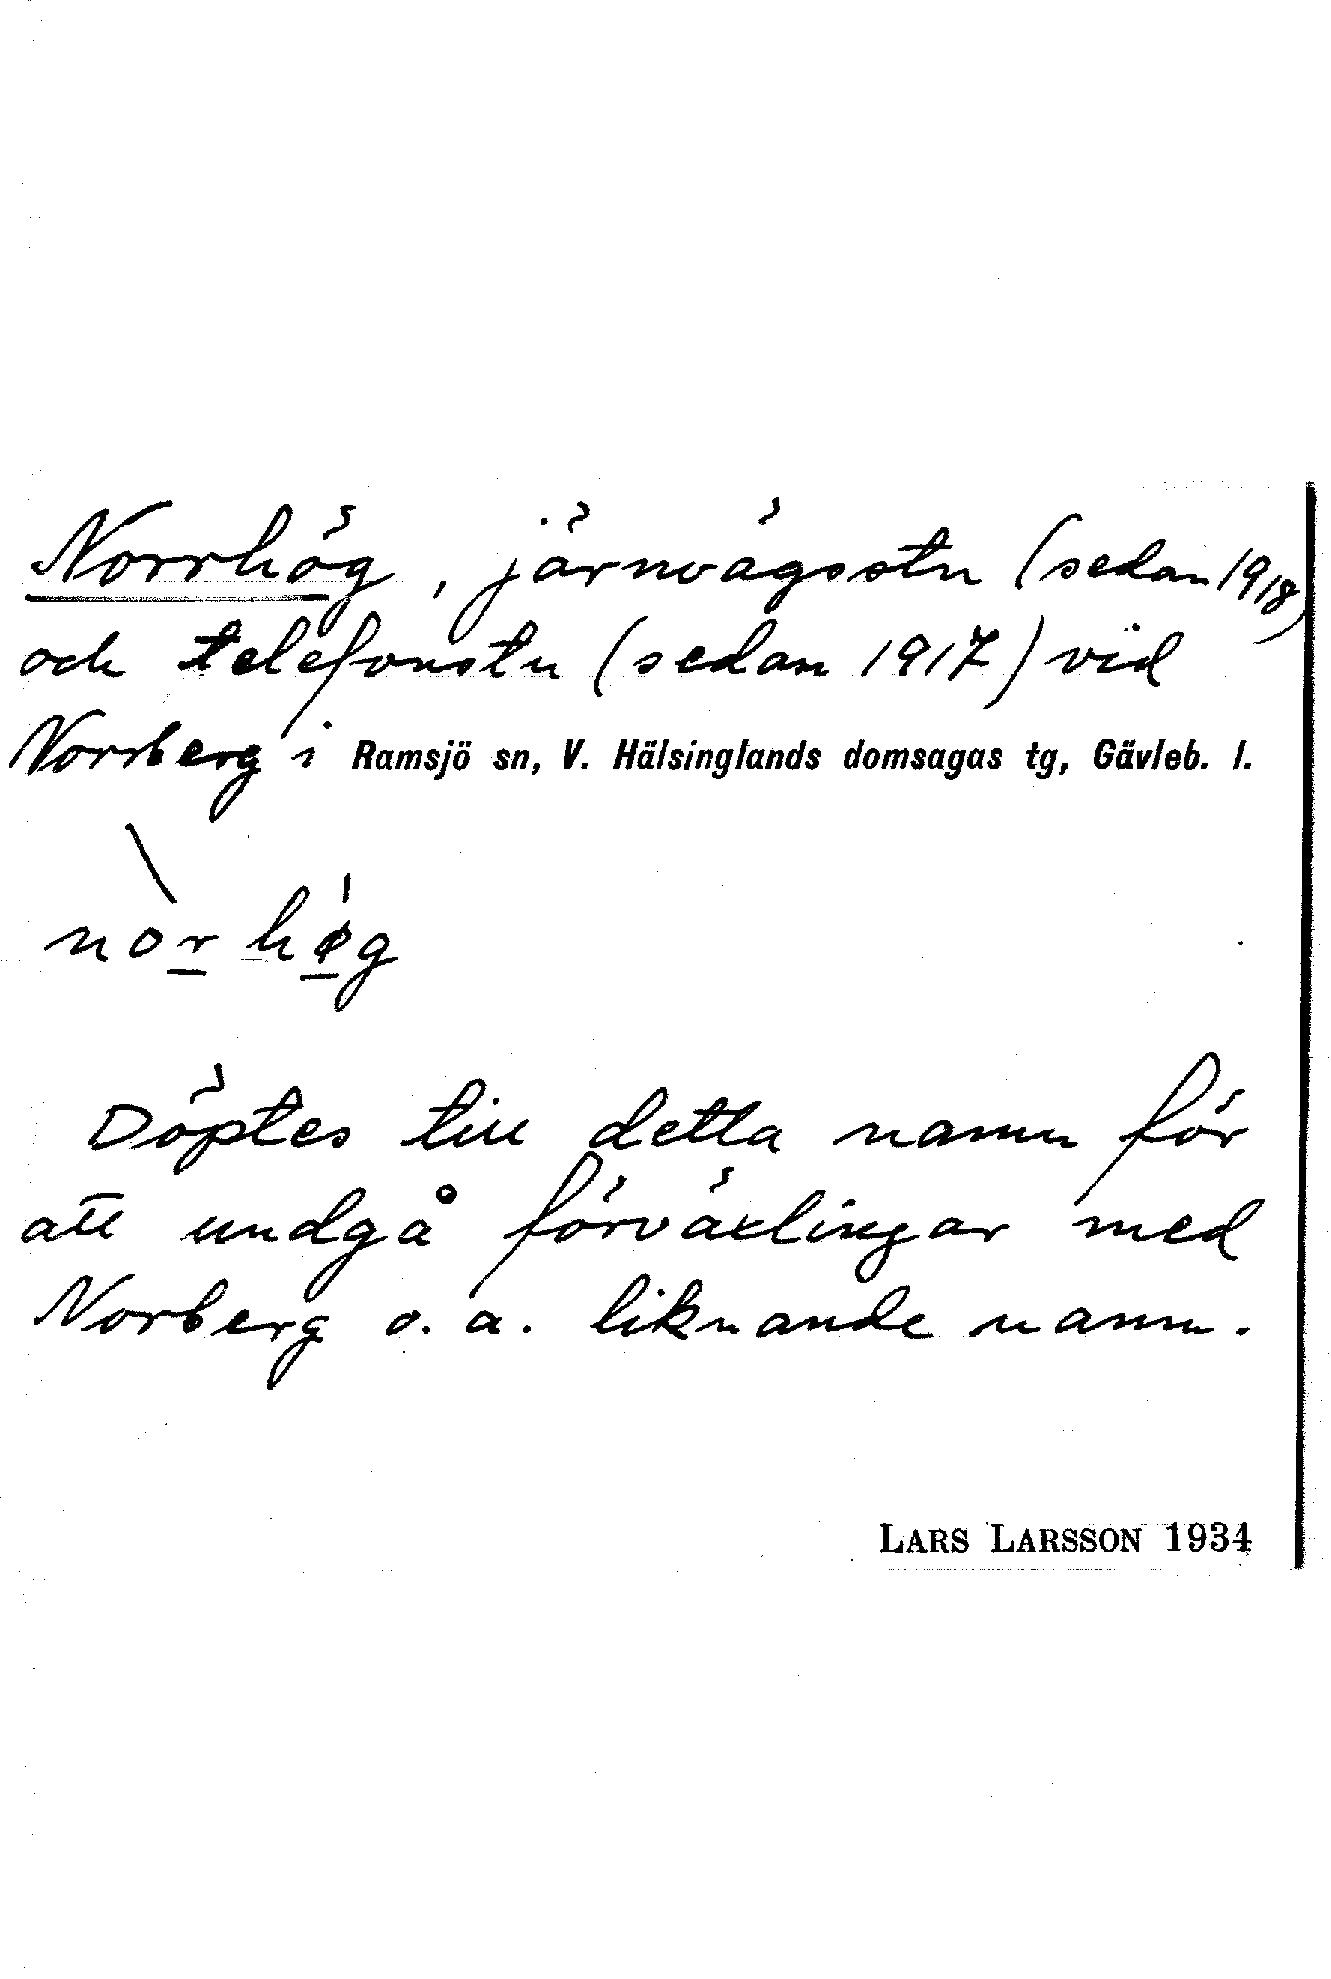 Norrhög, järnvägsstn (sedan 1918)
och telefonstn (sedan 1917) vid
Norrberg i Ramsjö sn, V. Hälsinglands domsagas tg, Gävleb. l.
norhøg
Döptes till detta namn för
att undgå förväxlingar med
Norberg o. a. liknande namn.
LARS LARSSON 1934